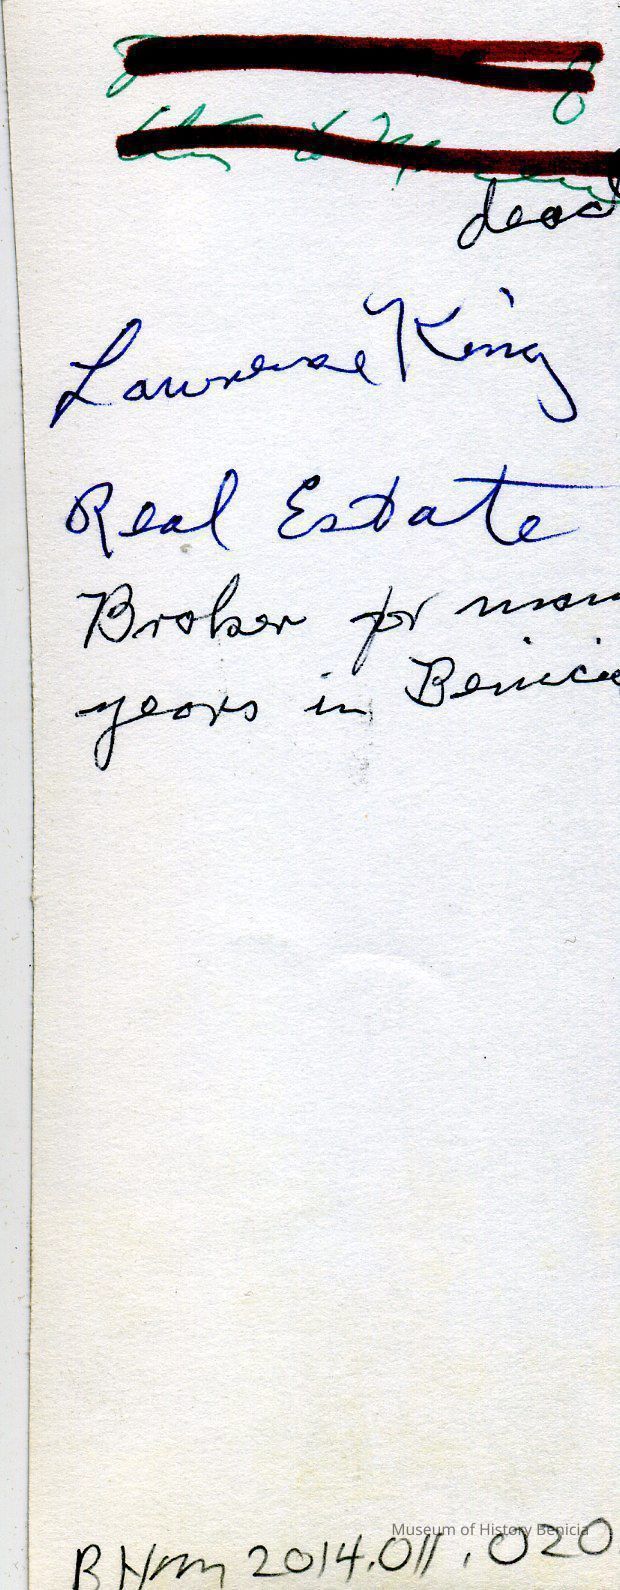 dead
Lawrense King
Real Estate
Broker for man
years in Benicia
Museum of History Benicia
BHMM 2014.011.020